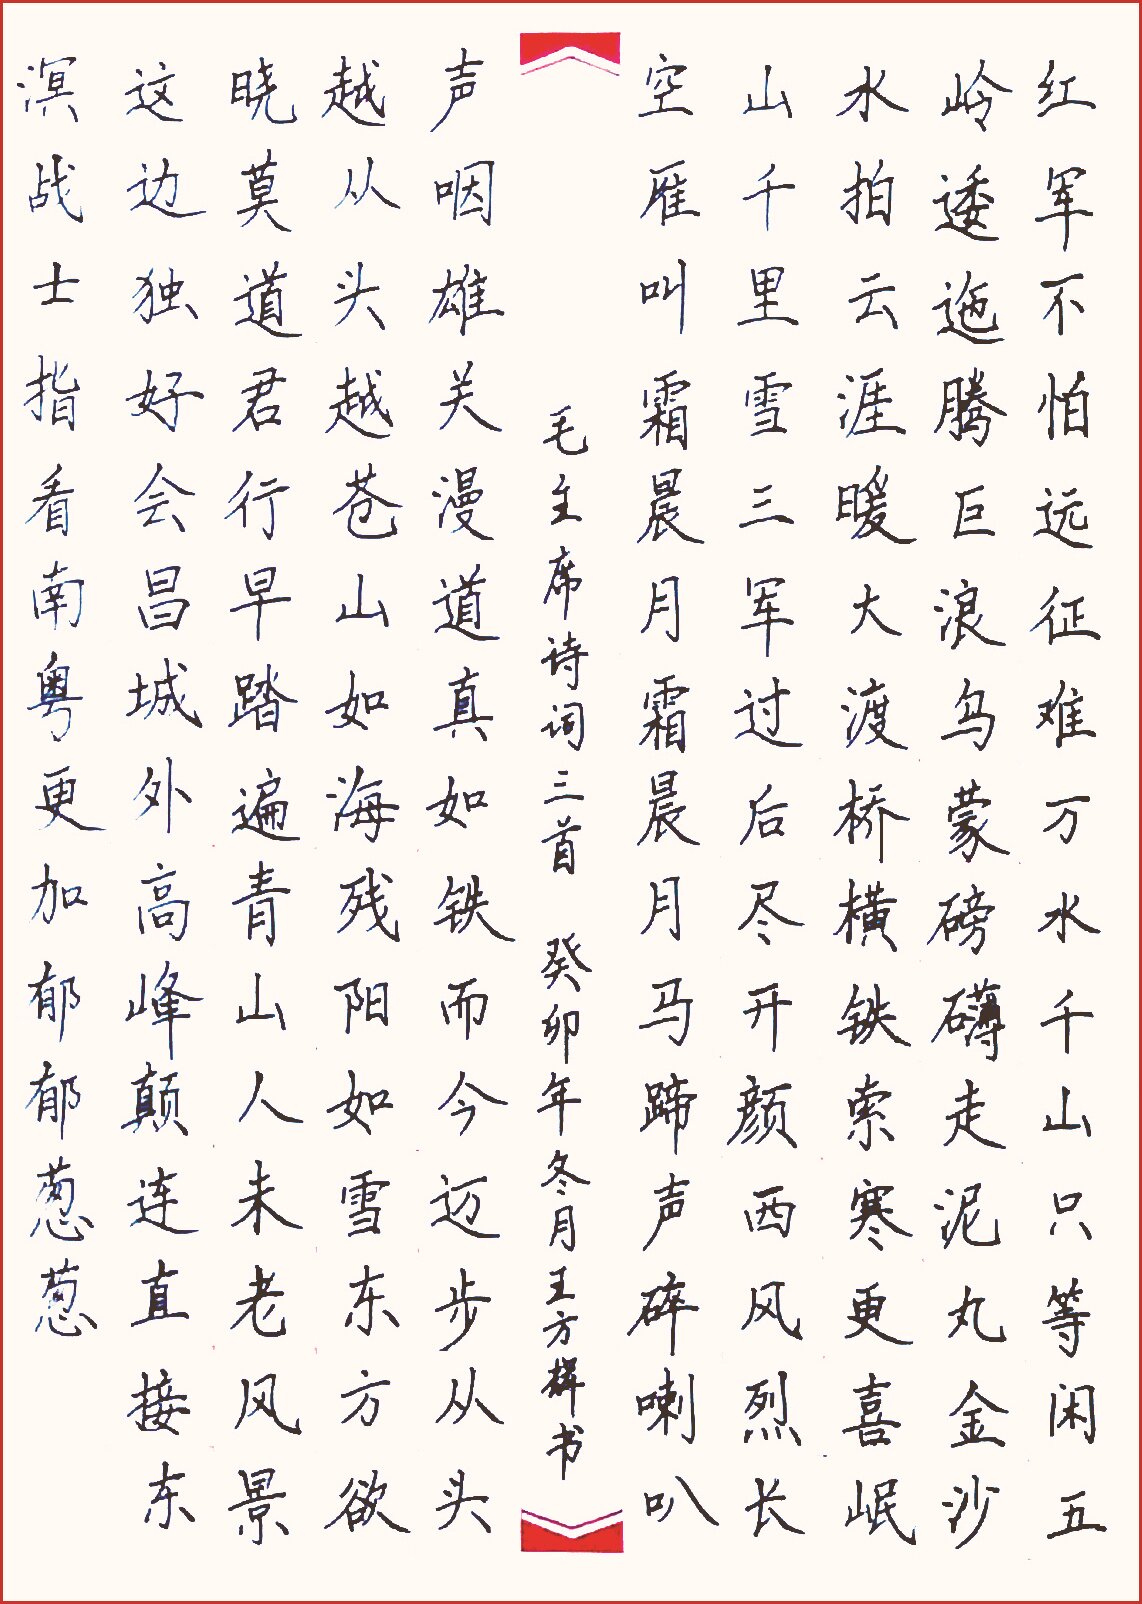 红军不怕远征难万水千山只等闲五
岭逶迤腾巨浪乌蒙磅礴走泥丸金沙
水拍云涯暖大渡桥横铁索寒更喜岷
山千里雪三军过后尽开颜西风烈长
空雁叫霜晨月霜晨月马蹄声碎喇叭
毛主席诗词三首 癸卯年冬月王方辉书
声咽雄关漫道真如铁而今迈步从头
越从头越苍山如海残阳如雪东方欲
晓莫道君行早踏遍青山人未老风景
这边独好会昌城外高峰颠连直接东
溟战士指看南粤更加郁郁葱葱